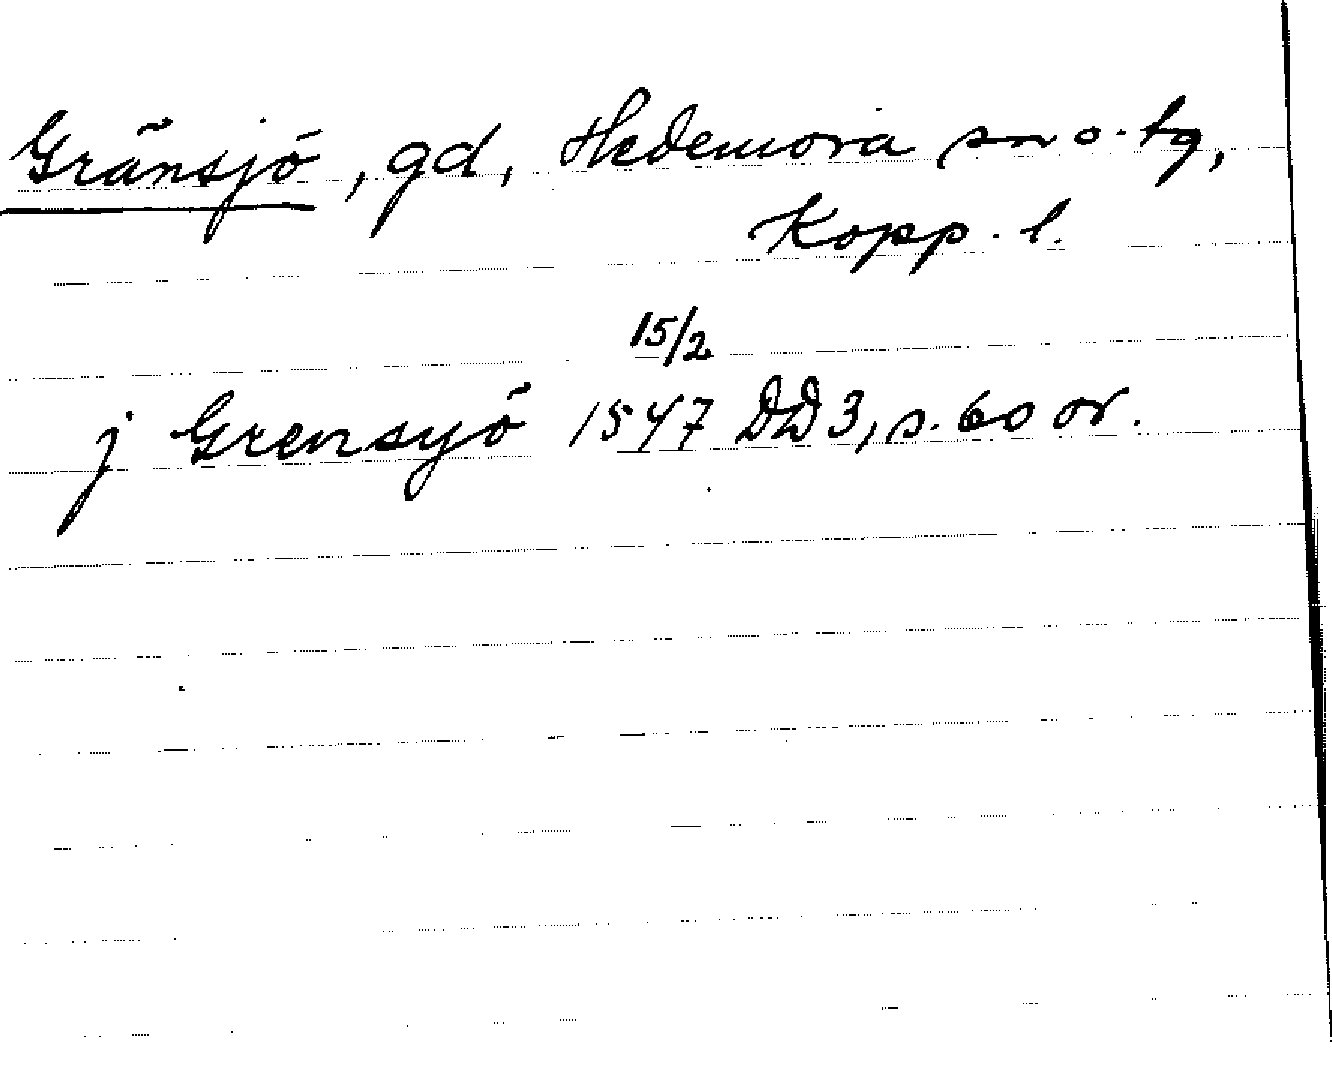 Gränsjö, gd, Hedemora sn o. tg,
Kopp. l.
15/2
j Grensyö 1547 DD 3, s. 60 or.